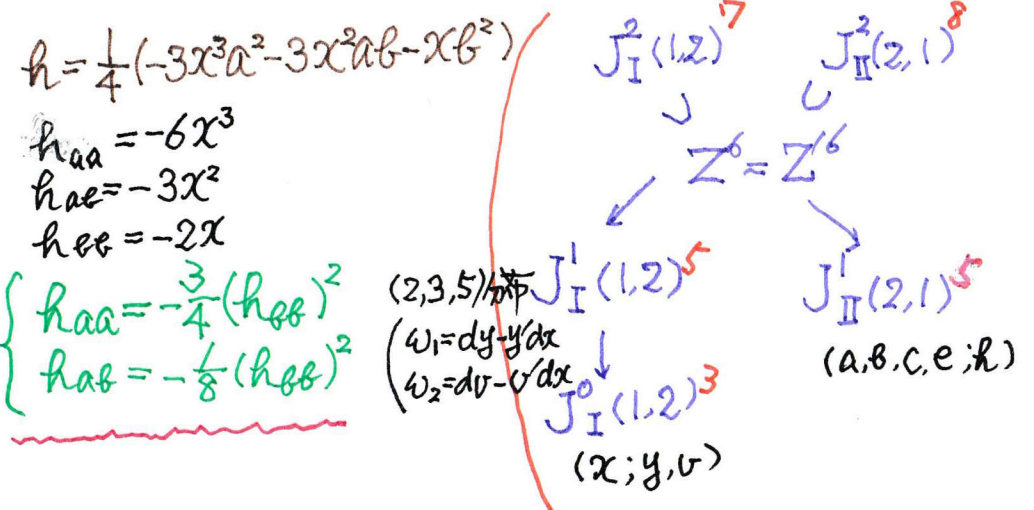 h = 1/4 (-3x³a² - 3x²ab - xb²)
h_aa = -6x³
h_ab = -3x²
h_bb = -2x
{ h_aa = -3/4 (h_bb)²
h_ab = -1/8 (h_bb)²
J²_I (1,2)⁷ J²_II (2,1)⁸
∪ ∪
Z⁶ = Z'⁶
↙ ↘
(2,3,5)分布 J¹_I (1,2)⁵ J¹_II (2,1)⁵
( ω₁ = dy - y'dx ↓ (a,b,c,e;h)
ω₂ = dv - v'dx J⁰_I (1,2)³
(x;y,v)